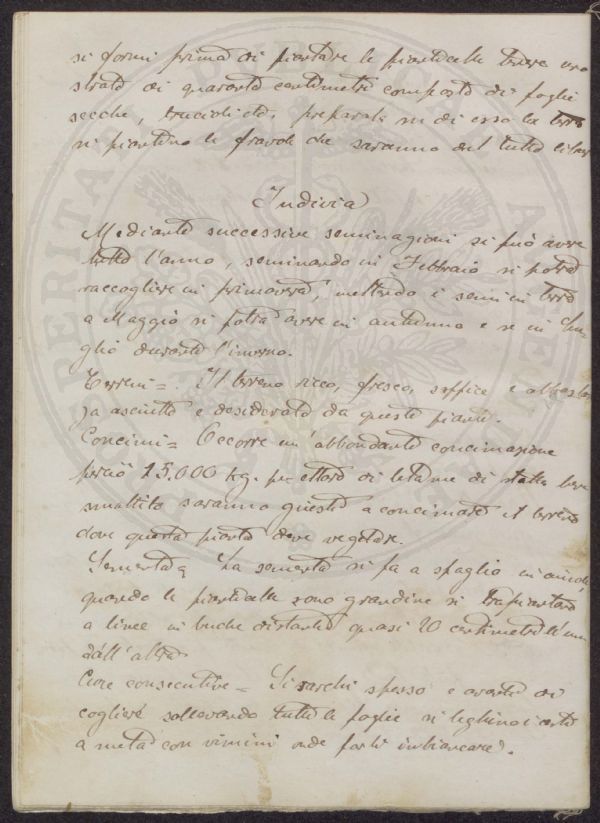 si formi prima di piantare le pianticelle uno
strato di quaranta centimetri composto di foglie
secche, trucioli etc. preparata su di esso la terra
si piantino le fravole che saranno del tutto libere
Indivia
Mediante successive seminagioni si può avere
tutto l'anno, seminando in Febbraio si potrà
raccogliere in primavera, mettendo i semi in terra
a Maggio si potrà avere in autunno e se in Lu-
glio durante l'inverno.
Terreni = Il terreno ricco, fresco, soffice e abbastan
za asciutto è desiderato da queste piante.
Concimi = Occorre un'abbondante concimazione
perciò 25.000 kg. per ettaro di letame di stalla bene
smaltito saranno questi a concimare il terreno
dove questa pianta deve vegetare.
Sementa = La sementa si fa a spaglio in
quando le pianticelle sono grandine si trapiantano
a linee in buche distanti quasi 20 centimetri l'una
dall'altra
Cure consecutive = Si sarchi spesso e avanti di
cogliere sollevando tutte le foglie si leghino
a metà con vimini onde farli imbiancare.